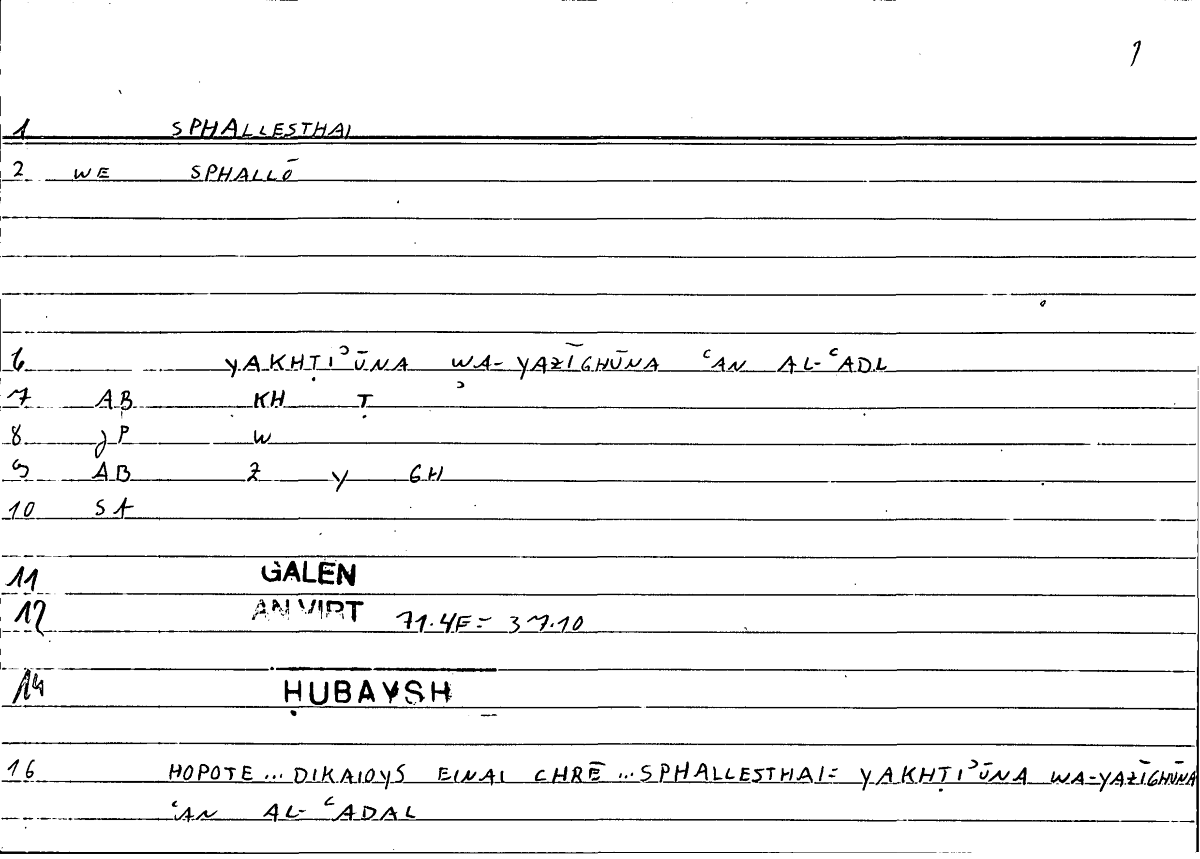 1
1 SPHALLESTHAI
2 WE SPHALLŌ
6 YAKHṬIʾŪNA WA-YAZĪGHŪNA ʿAN AL-ʿADL
7 AB KH Ṭ ʾ
8 JP W
9 AB Z Y GH
10 SA
11 GALEN
12 AN VIRT 71.4F= 37.10
14 ḤUBAYSH
16 HOPOTE ... DIKAIOYS EINAI CHRĒ ... SPHALLESTHAI= YAKHṬIʾŪNA WA-YAZĪGHŪNA
ʿAN AL-ʿADAL